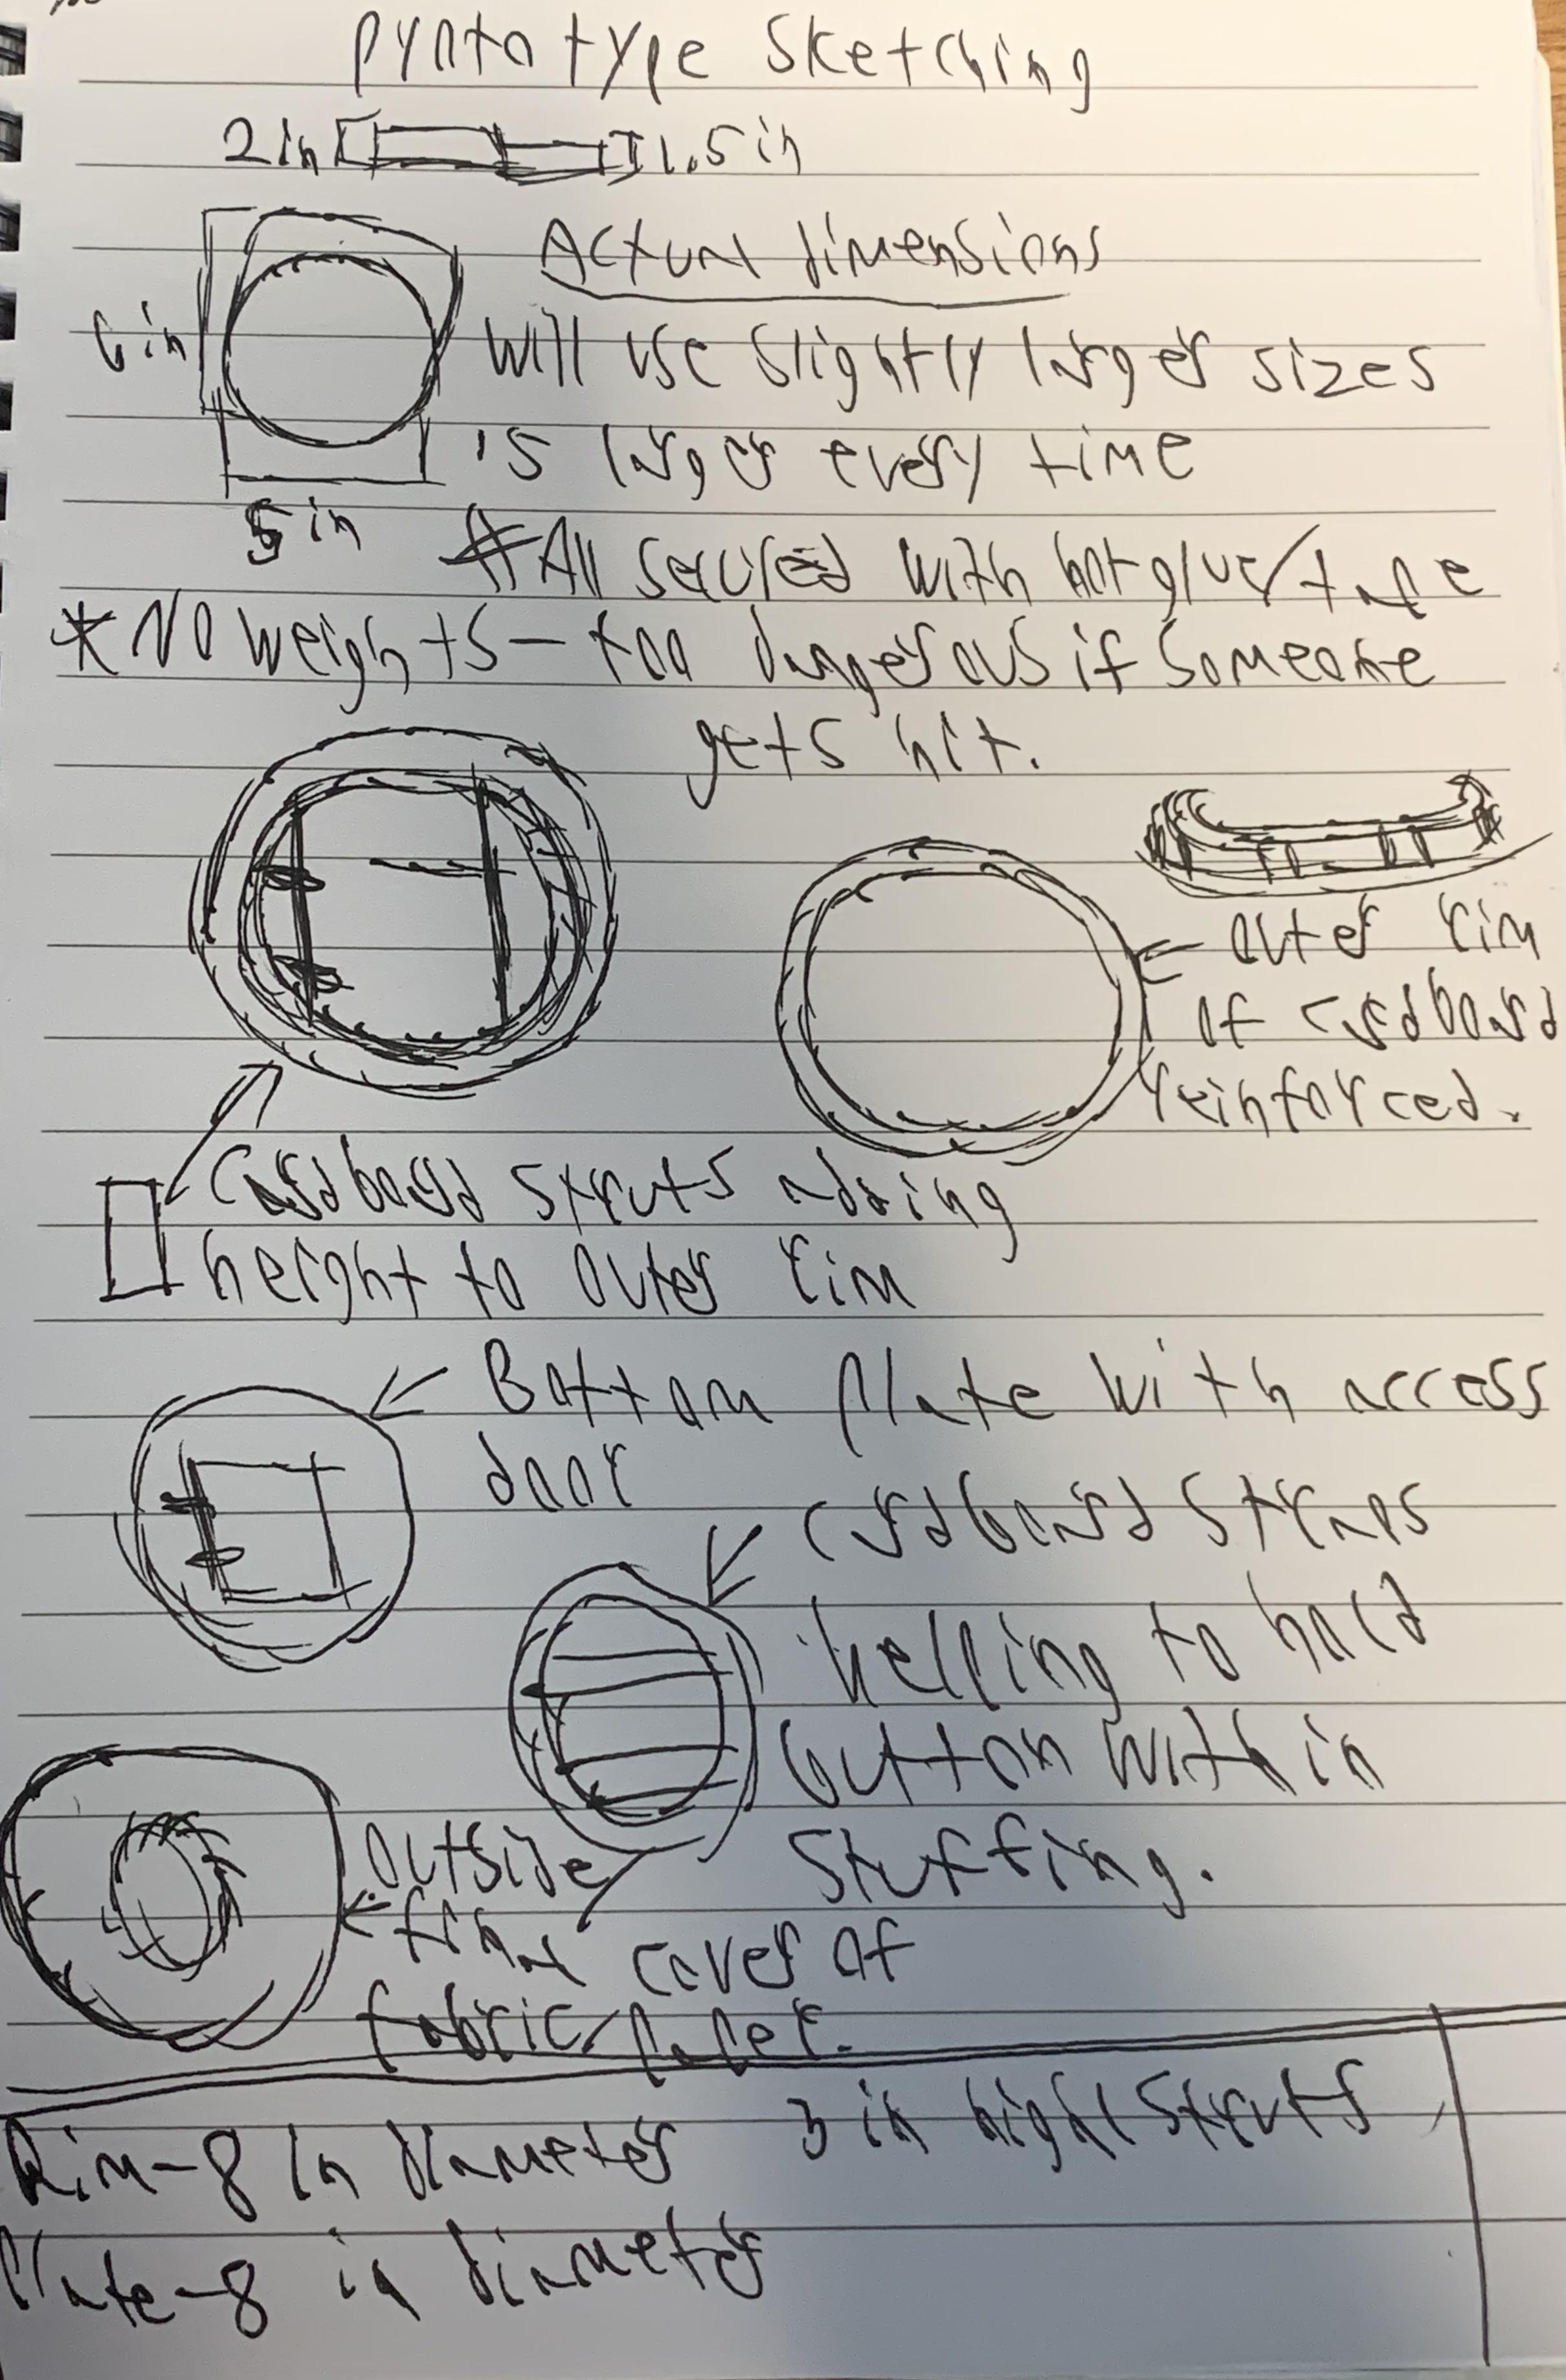 Prototype Sketching
2in 1.5in
Actual dimensions
6in
Will use slightly larger sizes
.5 larger every time
5in
*All secured with hot glue/tape
*No weights - too dangerous if someone
gets hit.
outer rim
of cardboard
reinforced.
Cardboard struts adding
height to outer rim
Bottom plate with access
door
cardboard straps
helping to hold
button within
stuffing.
outside
final cover of
fabric/paper.
3 in hight struts
Rim-8 in diameter
Plate-8 in diameter